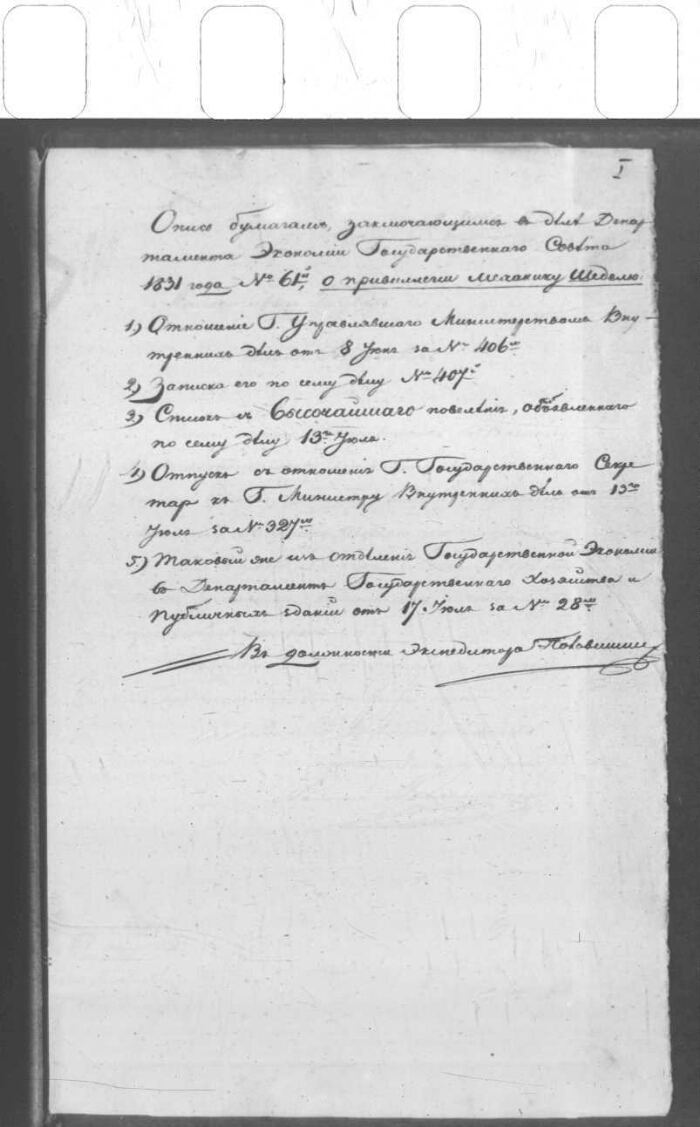 I
Опись бумагамъ, заключающимся въ дѣлѣ Депар-
тамента Экономіи Государственнаго Совѣта
1831 года № 61й, о привиллегіи механику Шеделю.
1) Отношеніе Г. Управлявшаго Министерствомъ Вну-
треннихъ дѣлъ отъ 8 Іюня за № 406мъ
2) Записка его по сему дѣлу № 407й
3) Списокъ съ Высочайшаго повелѣнія, объявленнаго
по сему дѣлу 13го Іюля.
4) Отпускъ съ отношенія Г. Государственнаго Секре-
таря къ Г. Министру Внутреннихъ дѣлъ отъ 15го
Іюля за № 327мъ
5) Таковый же изъ отдѣленія Государственной Экономіи
въ Департаментъ Государственнаго Хозяйства и
Публичныхъ зданій отъ 17 Іюля за № 28мъ
Въ должности Экспедитора